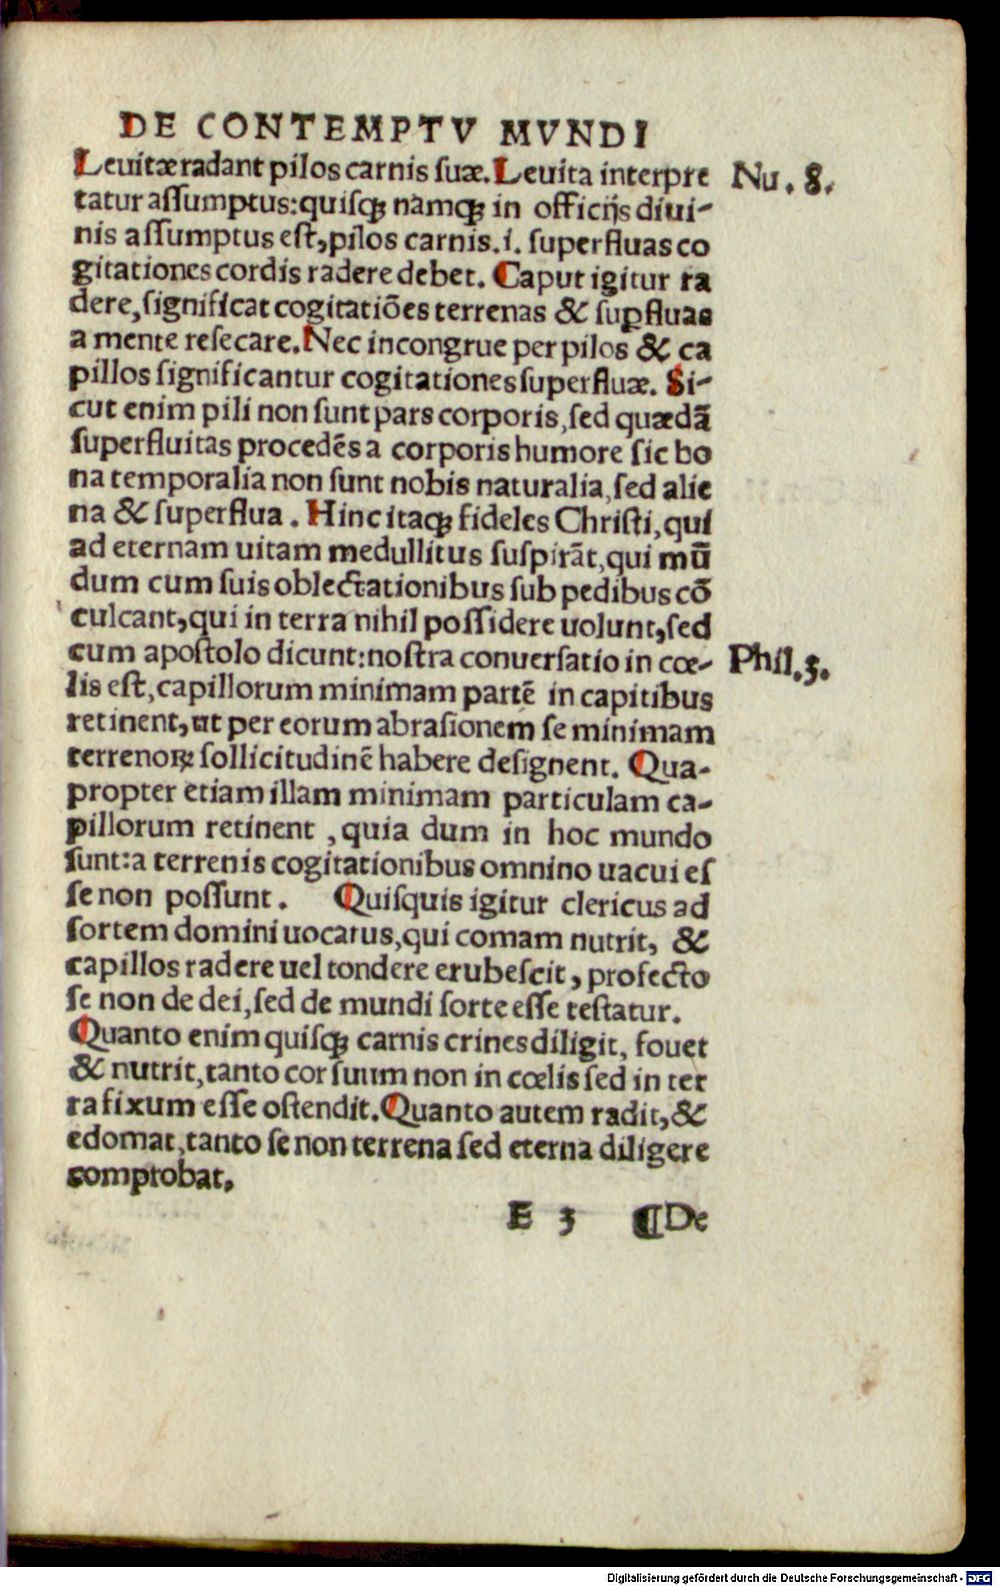 DE CONTEMPTV MVNDI
Leuitæ radant pilos carnis suæ. Leuita interpre Nu. 8.
tatur assumptus: quisqꝫ namqꝫ in officijs diui-
nis assumptus est, pilos carnis .i. superfluas co
gitationes cordis radere debet. Caput igitur ra
dere, significat cogitatiões terrenas & suꝑfluas
a mente resecare. Nec incongrue per pilos & ca
pillos significantur cogitationes superfluæ. Si-
cut enim pili non sunt pars corporis, sed quædã
superfluitas procedẽs a corporis humore sic bo
na temporalia non sunt nobis naturalia, sed alie
na & superflua. Hinc itaqꝫ fideles Christi, qui
ad eternam uitam medullitus suspirãt, qui mũ
dum cum suis oblectationibus sub pedibus cõ
culcant, qui in terra nihil possidere uolunt, sed
cum apostolo dicunt: nostra conuersatio in cœ- Phil. 3.
lis est, capillorum minimam partẽ in capitibus
retinent, ut per eorum abrasionem se minimam
terrenoꝝ sollicitudinẽ habere designent. Qua-
propter etiam illam minimam particulam ca-
pillorum retinent, quia dum in hoc mundo
sunt: a terrenis cogitationibus omnino uacui es
se non possunt. Quisquis igitur clericus ad
sortem domini uocatus, qui comam nutrit, &
capillos radere uel tondere erubescit, profecto
se non de dei, sed de mundi sorte esse testatur.
Quanto enim quisqꝫ carnis crines diligit, fouet
& nutrit, tanto cor suum non in cœlis sed in ter
ra fixum esse ostendit. Quanto autem radit, &
edomat, tanto se non terrena sed eterna diligere
comprobat.
E 3 ¶De
Digitalisierung gefördert durch die Deutsche Forschungsgemeinschaft - DFG